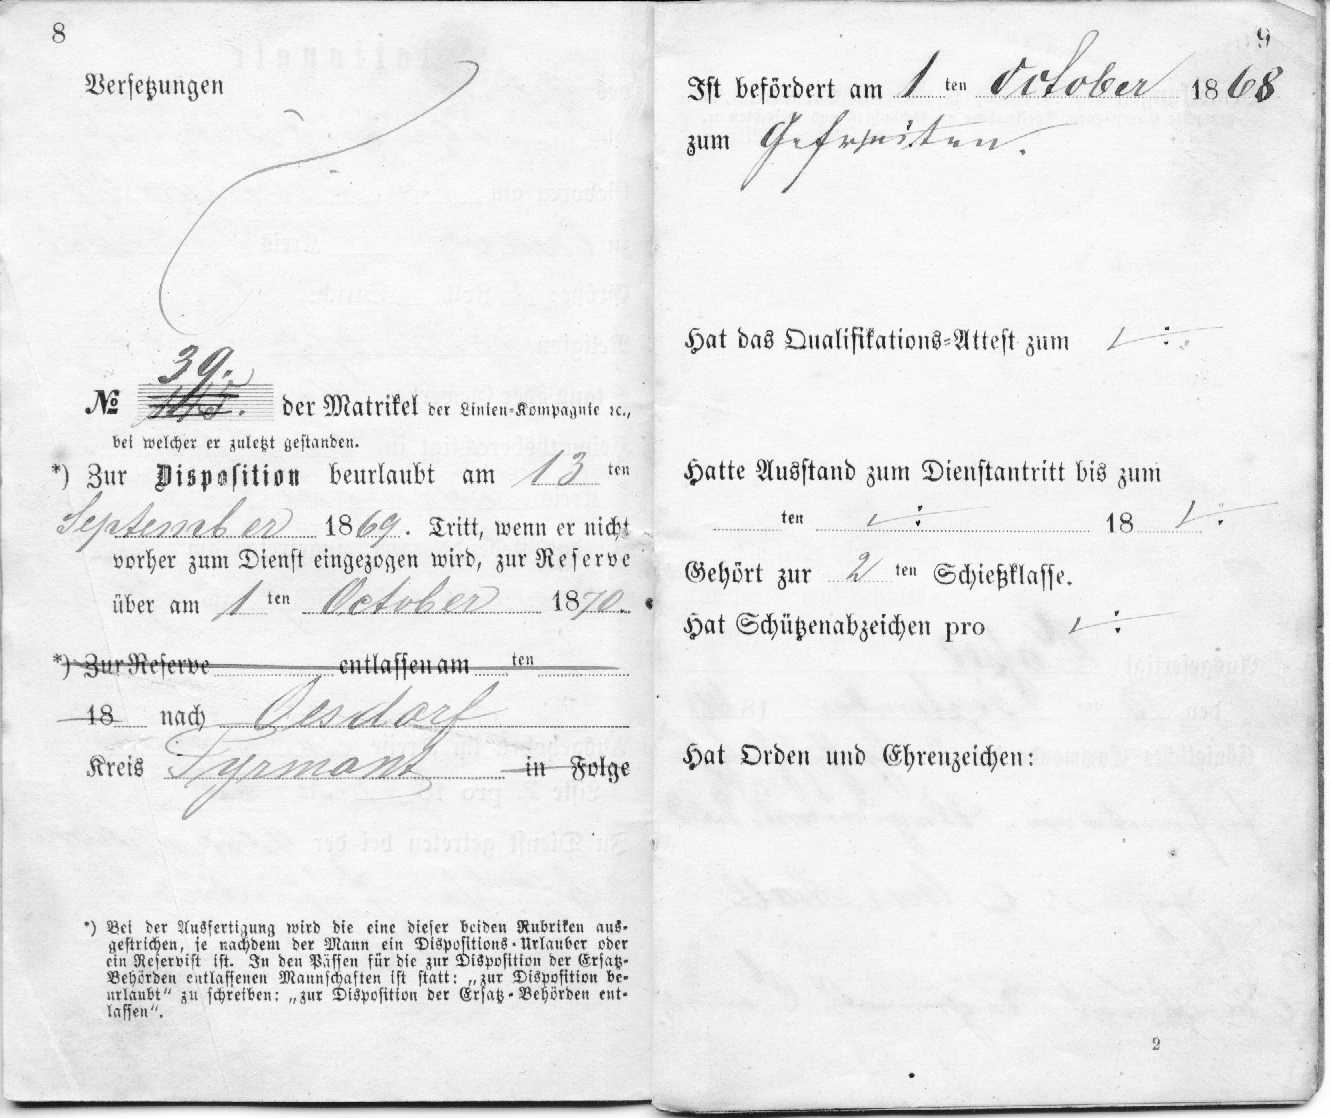 8
Versetzungen
39.
№ der Matrikel der Linien-Kompagnie ꝛc.,
bei welcher er zuletzt gestanden.
*) Zur Disposition beurlaubt am 13 ten
September 1869. Tritt, wenn er nicht
vorher zum Dienst eingezogen wird, zur Reserve
über am 1 ten October 1870.
*) Zur Reserve entlassen am ten
18 nach Oesdorf
Kreis Pyrmont in Folge
*) Bei der Ausfertigung wird die eine dieser beiden Rubriken aus-
gestrichen, je nachdem der Mann ein Dispositions-Urlauber oder
ein Reservist ist. In den Pässen für die zur Disposition der Ersatz-
Behörden entlassenen Mannschaften ist statt: „zur Disposition be-
urlaubt“ zu schreiben: „zur Disposition der Ersatz-Behörden ent-
lassen“.
9
Ist befördert am 1 ten October 1868
zum Gefreiten.
Hat das Qualifikations-Attest zum
Hatte Ausstand zum Dienstantritt bis zum
ten 18
Gehört zur 2 ten Schießklasse.
Hat Schützenabzeichen pro
Hat Orden und Ehrenzeichen:
2